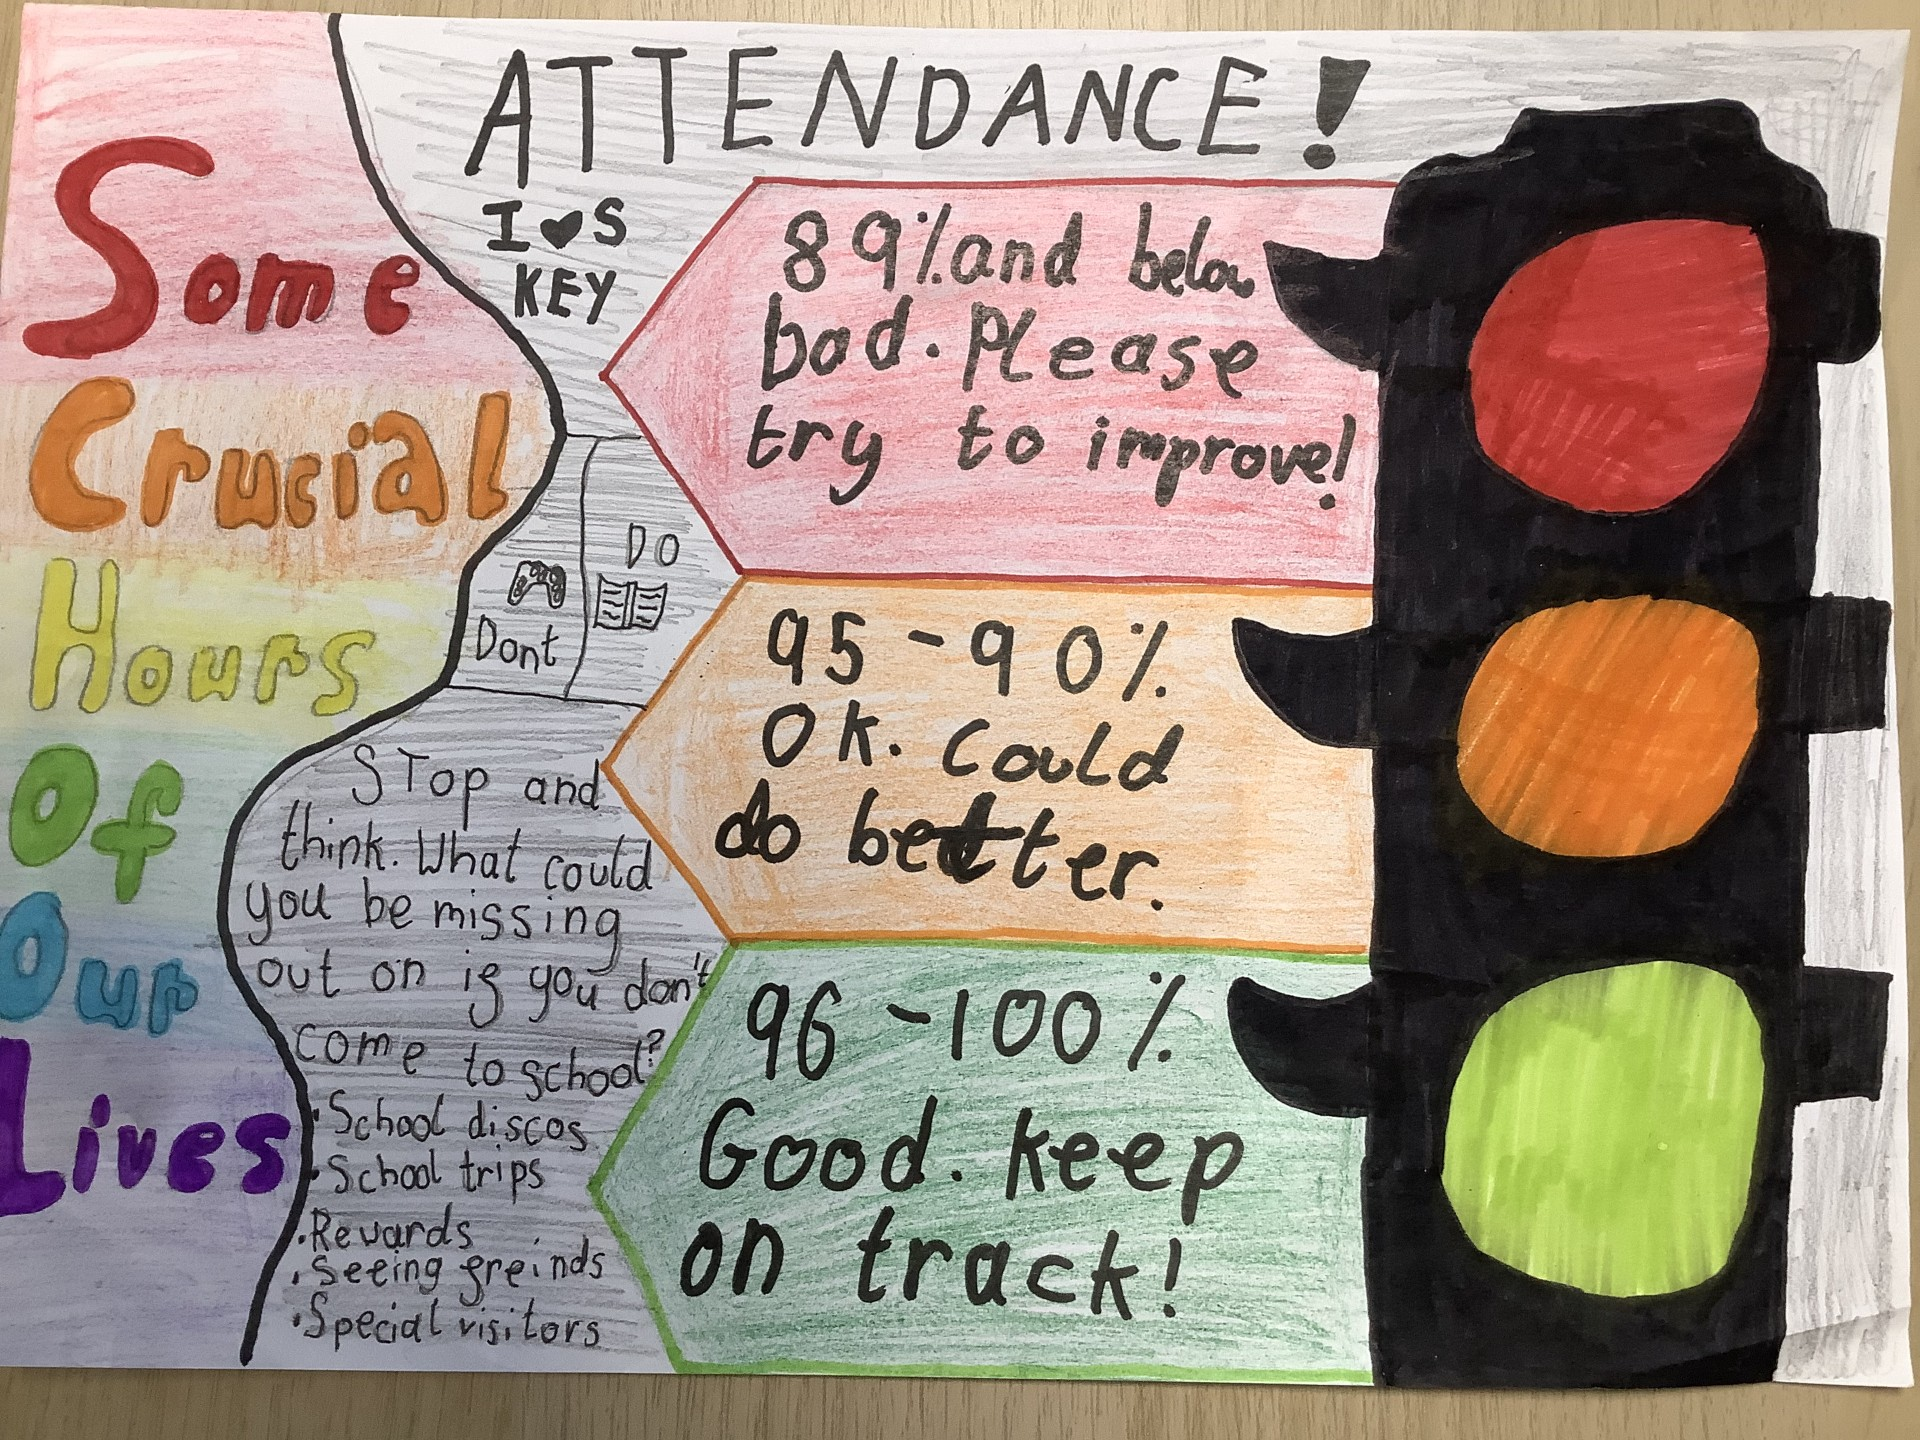 ATTENDANCE!
I ♥ S
KEY
Some
Crucial
Hours
Of
Our
Lives
DO
Dont
STop and
think. What could
you be missing
out on if you don't
come to school?
• School discos
• School trips
• Rewards
• Seeing freinds
• Special visitors
89% and below
bad. Please
try to improve!
95-90%
OK. Could
do better.
96-100%
Good. keep
on track!